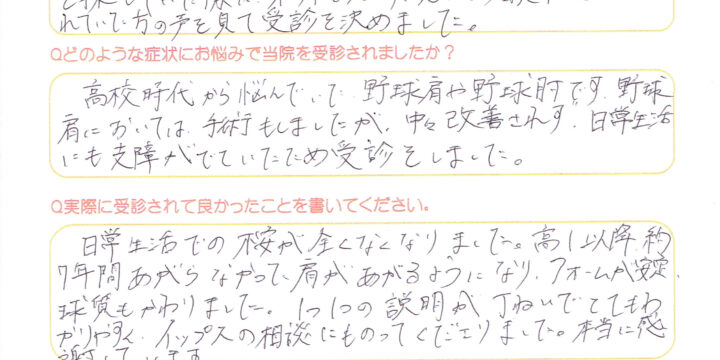 れていた方の声を見て受診を決めました。
Qどのような症状にお悩みで当院を受診されましたか？
高校時代から悩んでいた野球肩や野球肘です。野球
肩においては、手術もしましたが、中々改善されず、日常生活
にも支障がでていたため受診をしました。
Q実際に受診されて良かったことを書いてください。
日常生活での不安が全くなくなりました。高1以降、約
7年間あがらなかった肩があがるようになり、フォームが安定、
球質もかわりました。1つ1つの説明が丁ねいでとてもわ
かりやすく、イップスの相談にものってくださりました。本当に感
謝しています。